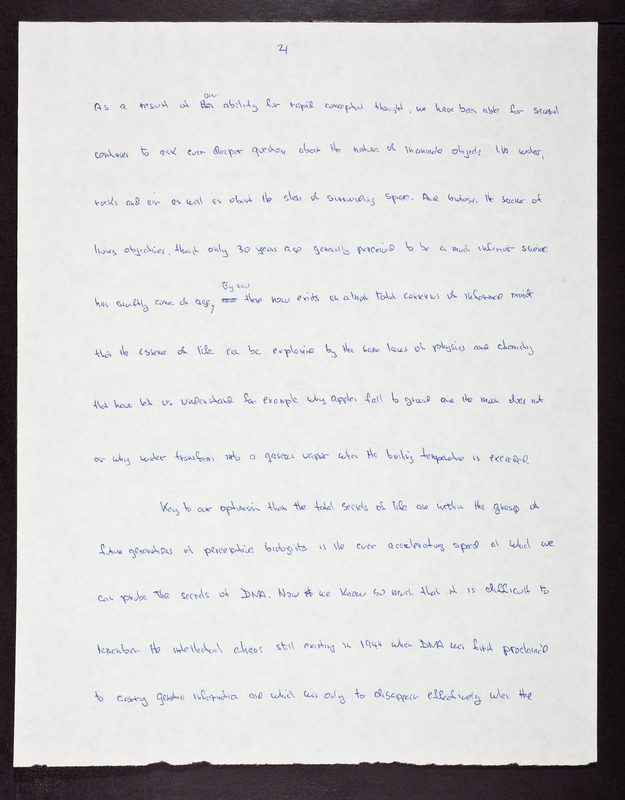 2
As a result of an ability for rapid conceptual thought, we have been able for several
centuries to ask ever deeper questions about the nature of inanimate objects like water,
rocks and air as well as about the stars of surrounding space. And biology, the science of
living objectives, though only 30 years ago generally perceived to be a much inferior science
has swiftly come of age, By now there now exists an almost total consensus of informed minds
that the essence of life can be explained by the same laws of physics and chemistry
that have let us understand for example why apples fall to ground and the moon does not
or why water transforms into a gaseous vapor when its boiling temperature is exceeded.
Key to our optimism that the total secrets of life are within the grasp of
future generations of perceptive biologists is the ever accelerating speed at which we
can probe the secrets of DNA. Now we know so much that it is difficult to
remember the intellectual chaos still existing in 1944 when DNA was first proclaimed
to carry genetic information and which was only to disappear effectively when the